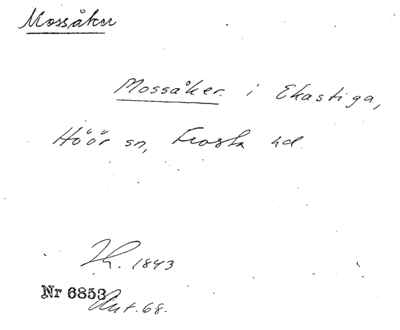 Mossåker
Mossåker i Ekastiga,
Höör sn, Frosta hd
1843
Nr 6853
Ant. 68.